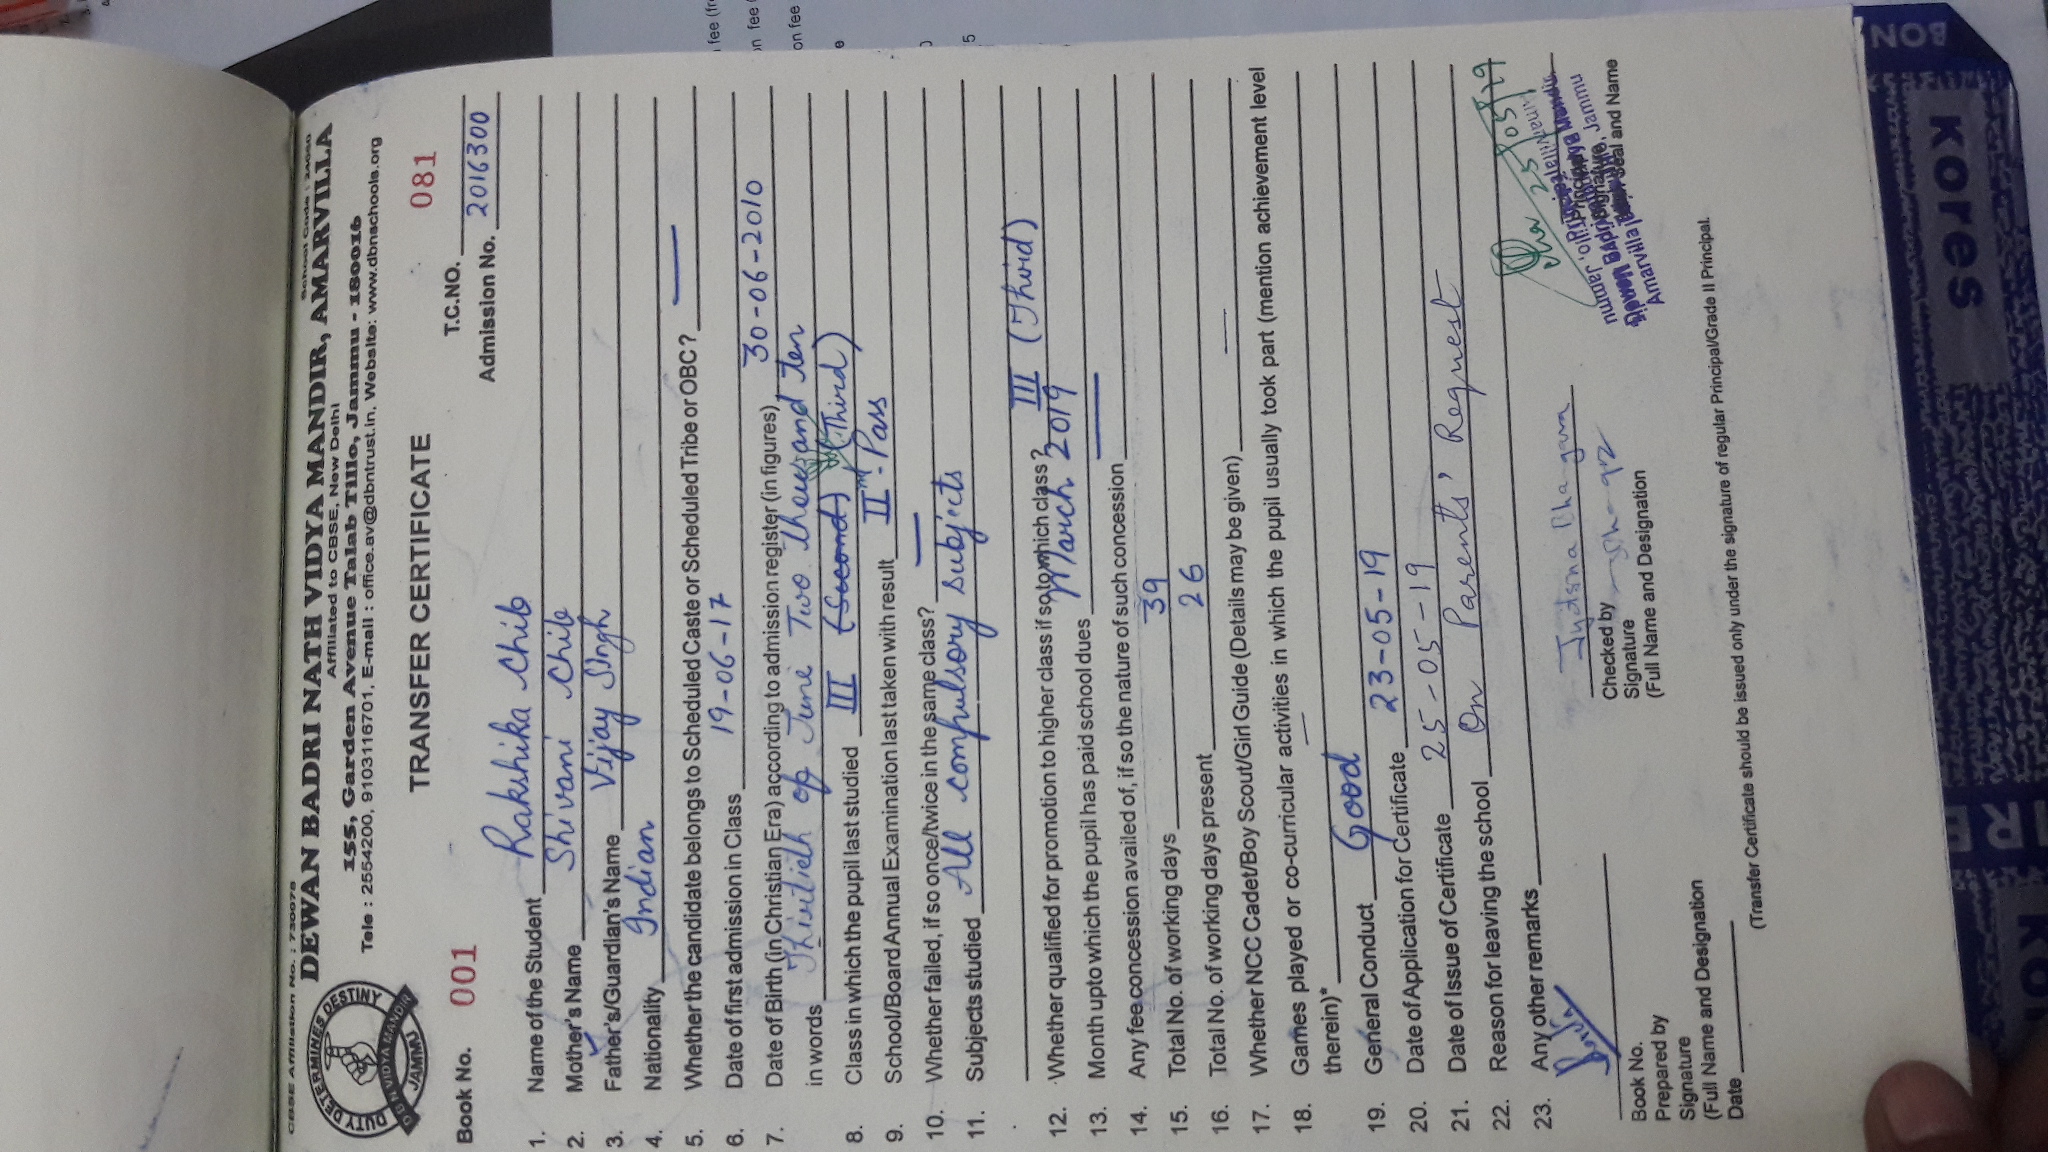 CBSE Affiliation No. : 730078 School Code : 24040
DEWAN BADRI NATH VIDYA MANDIR, AMARVILLA
Affiliated to CBSE, New Delhi
155, Garden Avenue Talab Tillo, Jammu - 180016
Tele : 2554200, 9103116701, E-mail : office.av@dbntrust.in. Website: www.dbnschools.org
DUTY DETERMINES DESTINY
D B N VIDYA MANDIR
JAMMU
TRANSFER CERTIFICATE
Book No. 001 T.C.NO. 081
Admission No. 2016300
1. Name of the Student Rakshika Chib
2. Mother's Name Shivani Chib
3. Father's/Guardian's Name Vijay Singh
4. Nationality Indian
5. Whether the candidate belongs to Scheduled Caste or Scheduled Tribe or OBC? —
6. Date of first admission in Class 19-06-17
7. Date of Birth (in Christian Era) according to admission register (in figures) 30-06-2010
in words Thirtieth of June Two thousand Ten
8. Class in which the pupil last studied III (Second) (Third)
9. School/Board Annual Examination last taken with result IInd - Pass
10. Whether failed, if so once/twice in the same class? —
11. Subjects studied All compulsory subjects
12. Whether qualified for promotion to higher class if so to which class? III (Third)
13. Month upto which the pupil has paid school dues March 2019
14. Any fee concession availed of, if so the nature of such concession —
15. Total No. of working days 39
16. Total No. of working days present 26
17. Whether NCC Cadet/Boy Scout/Girl Guide (Details may be given) —
18. Games played or co-curricular activities in which the pupil usually took part (mention achievement level
therein)* —
19. General Conduct Good
20. Date of Application for Certificate 23-05-19
21. Date of Issue of Certificate 25-05-19
22. Reason for leaving the school On Parents' Request
23. Any other remarks
25/05/19
Book No.
Prepared by
Signature
(Full Name and Designation
Date
Checked by
Signature
(Full Name and Designation
Seal and Name
(Transfer Certificate should be issued only under the signature of regular Principal/Grade II Principal.
BON
Kores